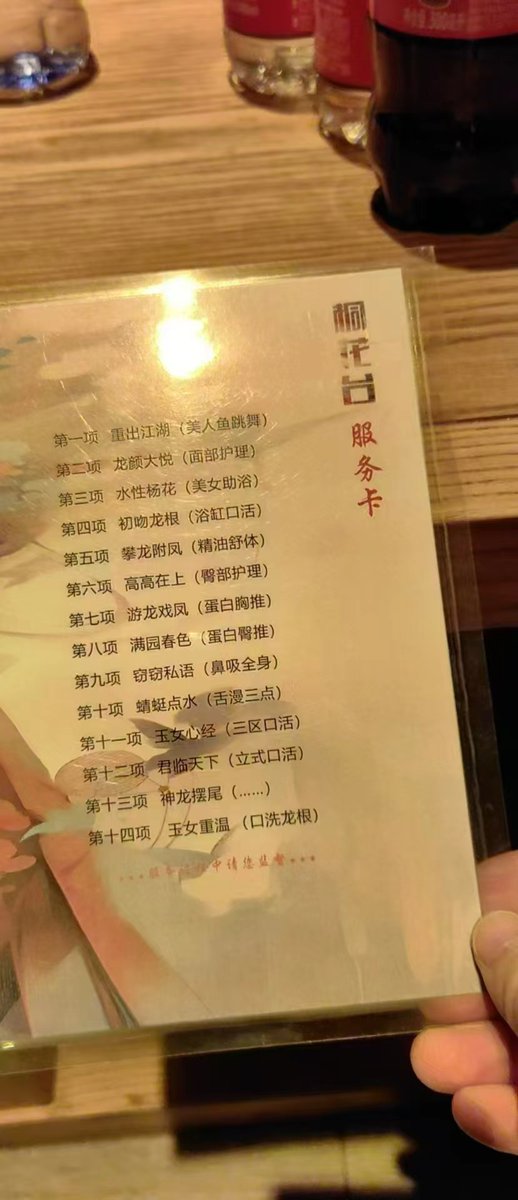 桐花台
服务卡
第一项 重出江湖（美人鱼跳舞）
第二项 龙颜大悦（面部护理）
第三项 水性杨花（美女助浴）
第四项 初吻龙根（浴缸口活）
第五项 攀龙附凤（精油舒体）
第六项 高高在上（臀部护理）
第七项 游龙戏凤（蛋白胸推）
第八项 满园春色（蛋白臀推）
第九项 窃窃私语（鼻吸全身）
第十项 蜻蜓点水（舌漫三点）
第十一项 玉女心经（三区口活）
第十二项 君临天下（立式口活）
第十三项 神龙摆尾（......）
第十四项 玉女重温（口洗龙根）
中请您监督